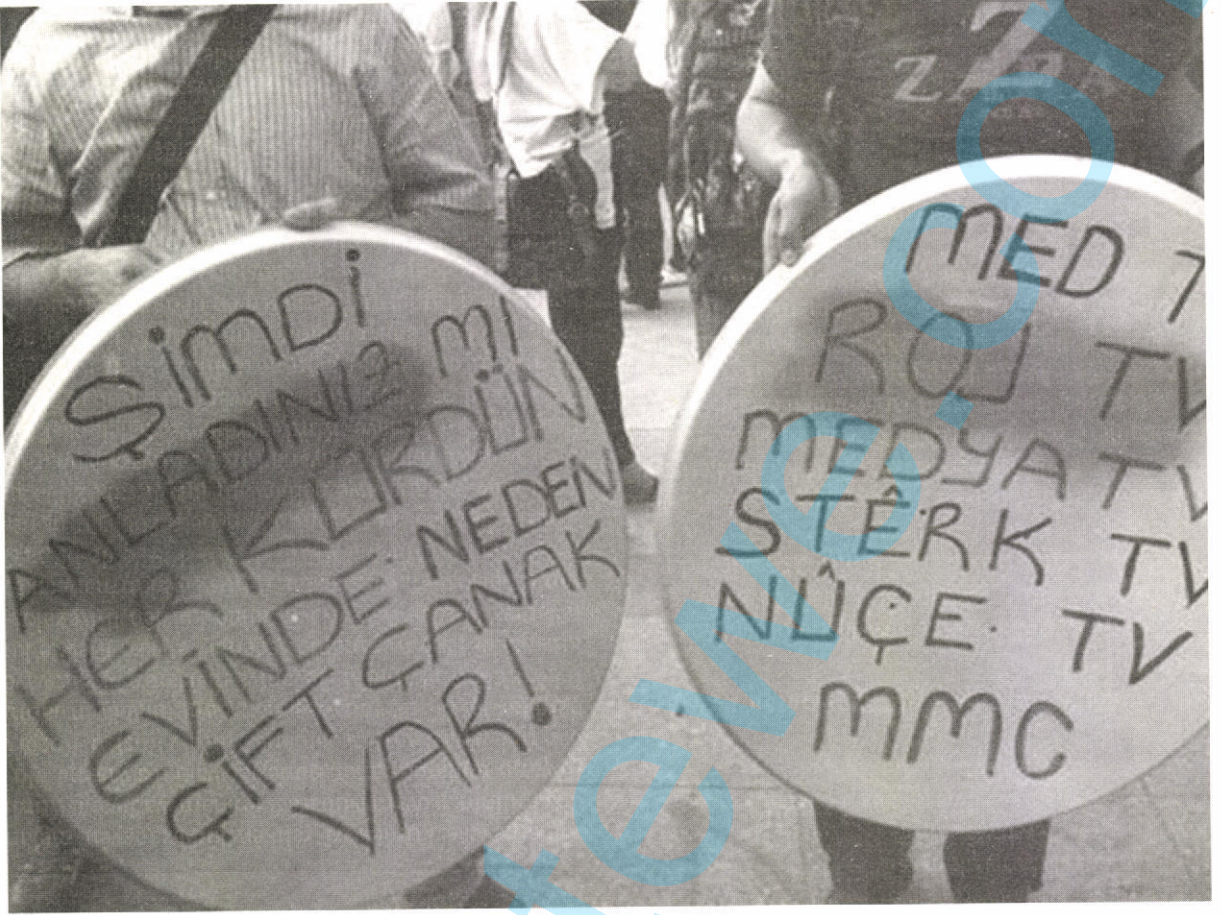 ŞİMDİ
ANLADINIZ MI
HER KÜRDÜN
EVİNDE NEDEN
ÇİFT ÇANAK
VAR!
MED T
ROJ TV
MEDYA TV
STÊRK TV
NÛÇE TV
MMC
Z
ZARA